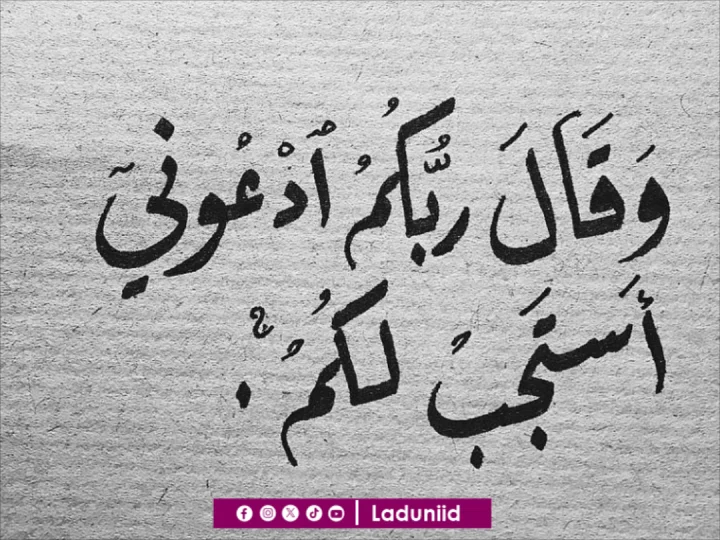 وَقَالَ رَبُّكُمُ ٱدْعُونِيٓ
أَسْتَجِبْ لَكُمْۚ
Laduniid